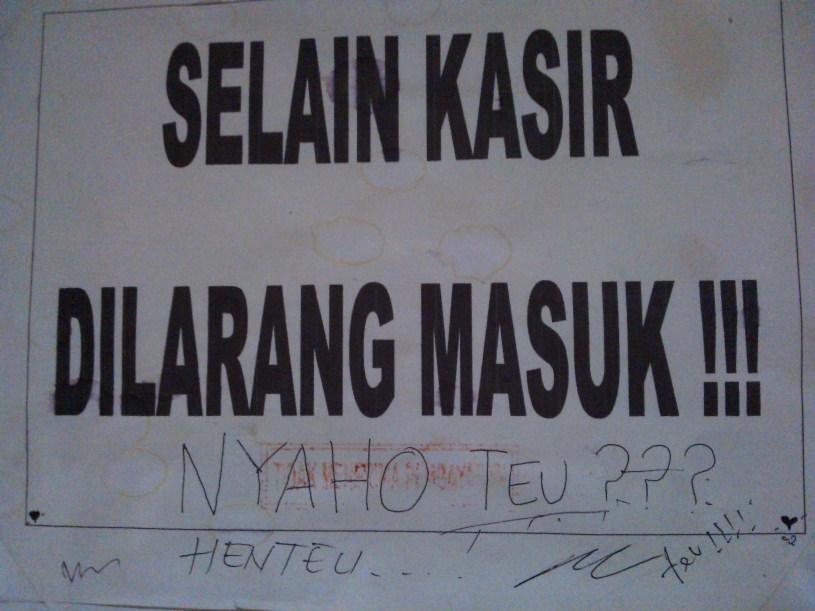 SELAIN KASIR
DILARANG MASUK !!!
NYAHO TEU ???
HENTEU.....
teu!!!!